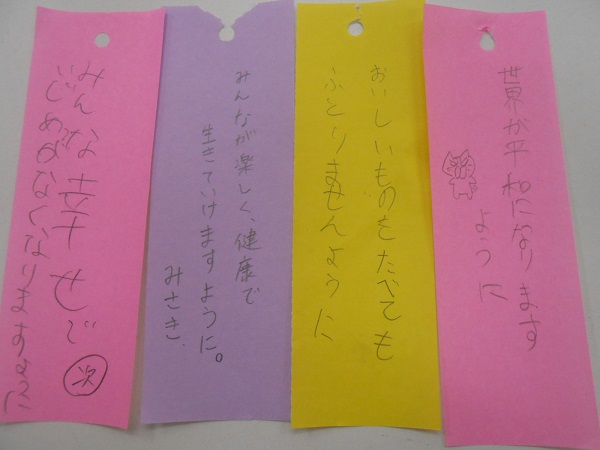 世界が平和になります
ように
おいしいものをたべても
ふとりませんように
みんなが楽しく、健康で
生きていけますように。
みさき.
みんな幸せで
次
いじめがなくなりますように